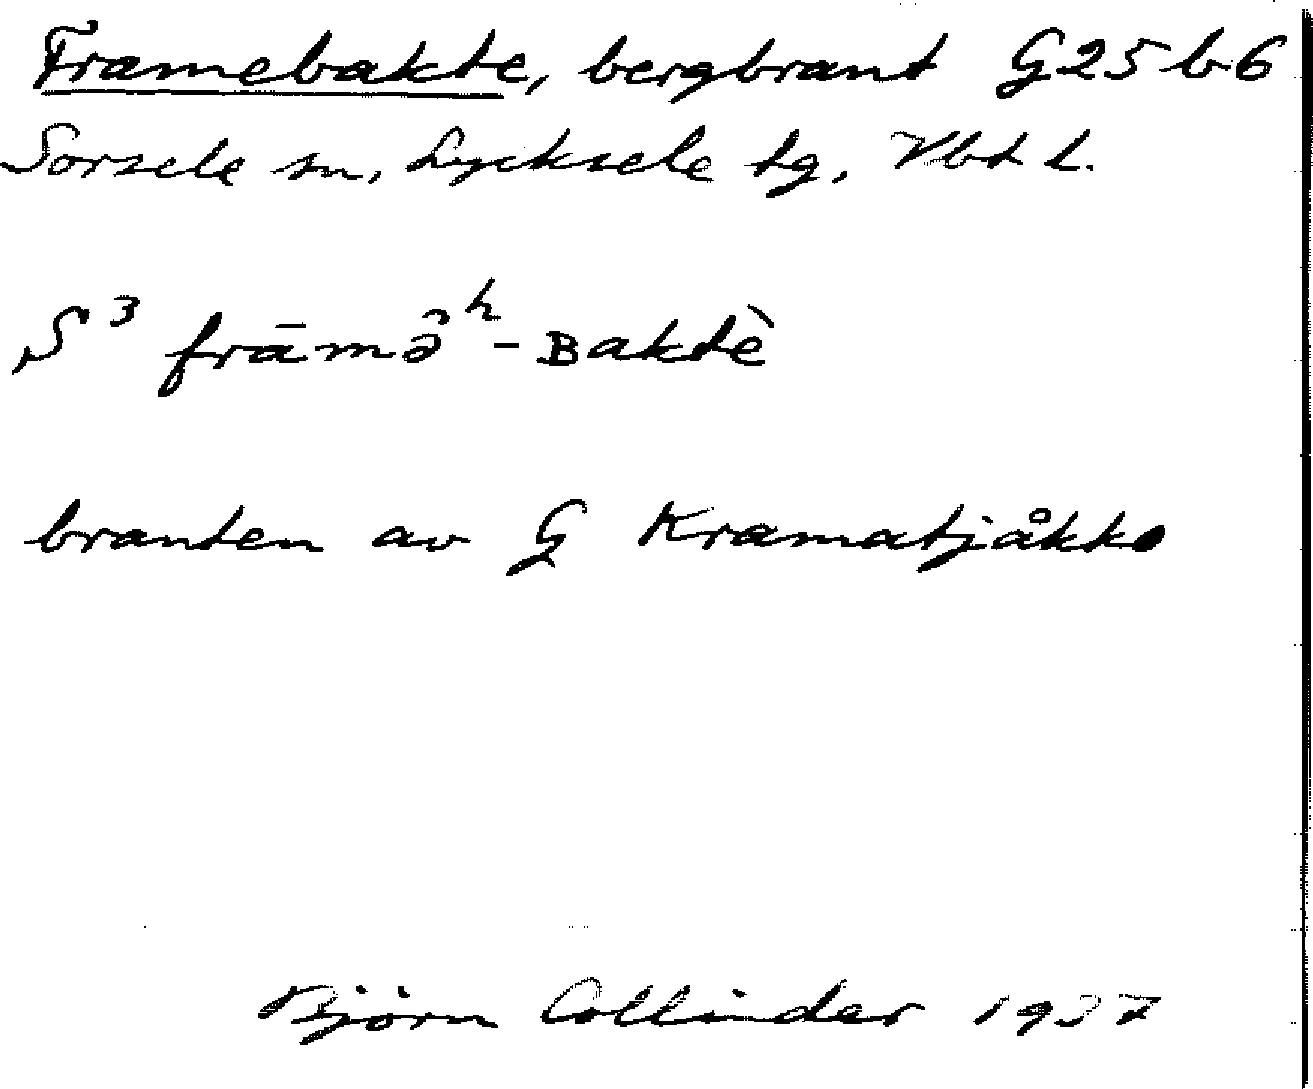 Framebakte, bergbrant G25b6
Sorsele sn, Lycksele tg, Vbt l.
S³ frāmə̂ʰ-ʙaktè
branten av G Kramatjåkko
Björn Collinder 1937